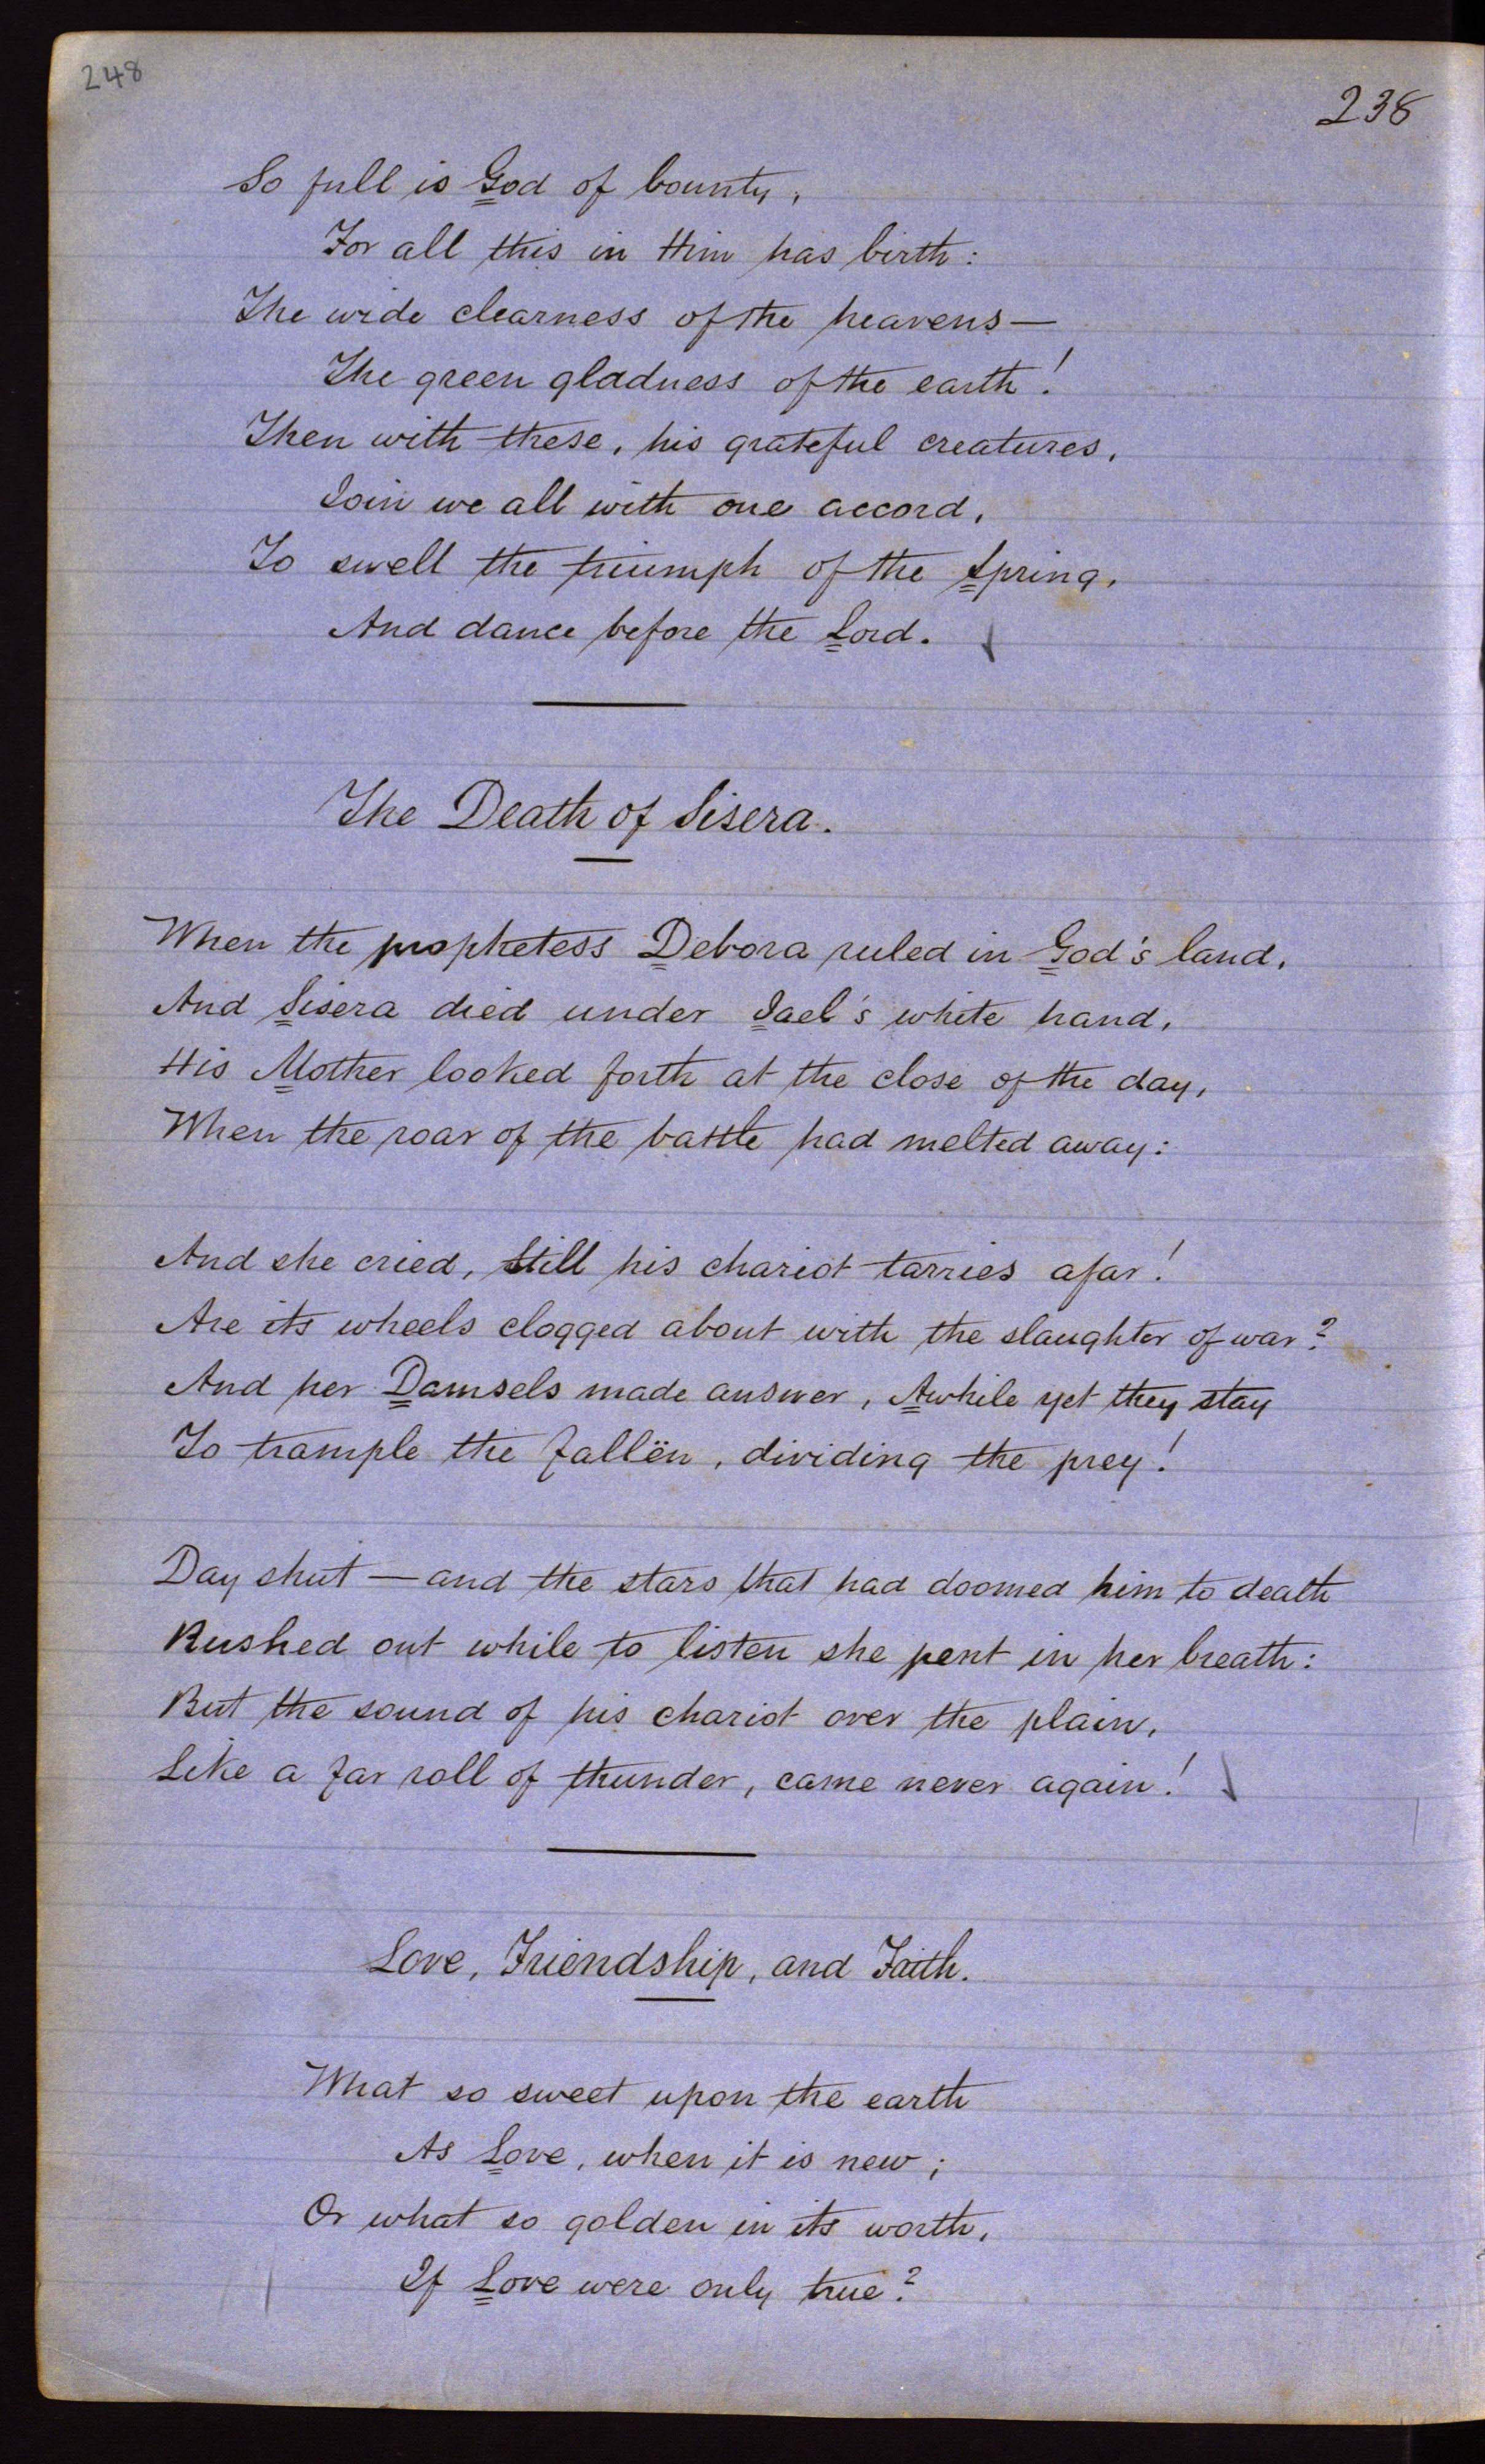 248
238
So full is God of bounty,
For all this in Him has birth:
The wide clearness of the heavens—
The green gladness of the earth!
Then with these, his grateful creatures,
Join we all with one accord,
To swell the triumph of the Spring,
And dance before the Lord.
The Death of Sisera.
When the prophetess Debora ruled in God's land,
And Sisera died under Jael's white hand,
His Mother looked forth at the close of the day,
When the roar of the battle had melted away:
And she cried, Still his chariot tarries afar!
Are its wheels clogged about with the slaughter of war?
And her Damsels made answer, Awhile yet they stay
To trample the fallën, dividing the prey!
Day shut — and the stars that had doomed him to death
Rushed out while to listen she pent in her breath:
But the sound of his chariot over the plain,
Like a far roll of thunder, came never again!
Love, Friendship, and Faith.
What so sweet upon the earth
As Love, when it is new;
Or what so golden in its worth,
If Love were only true?